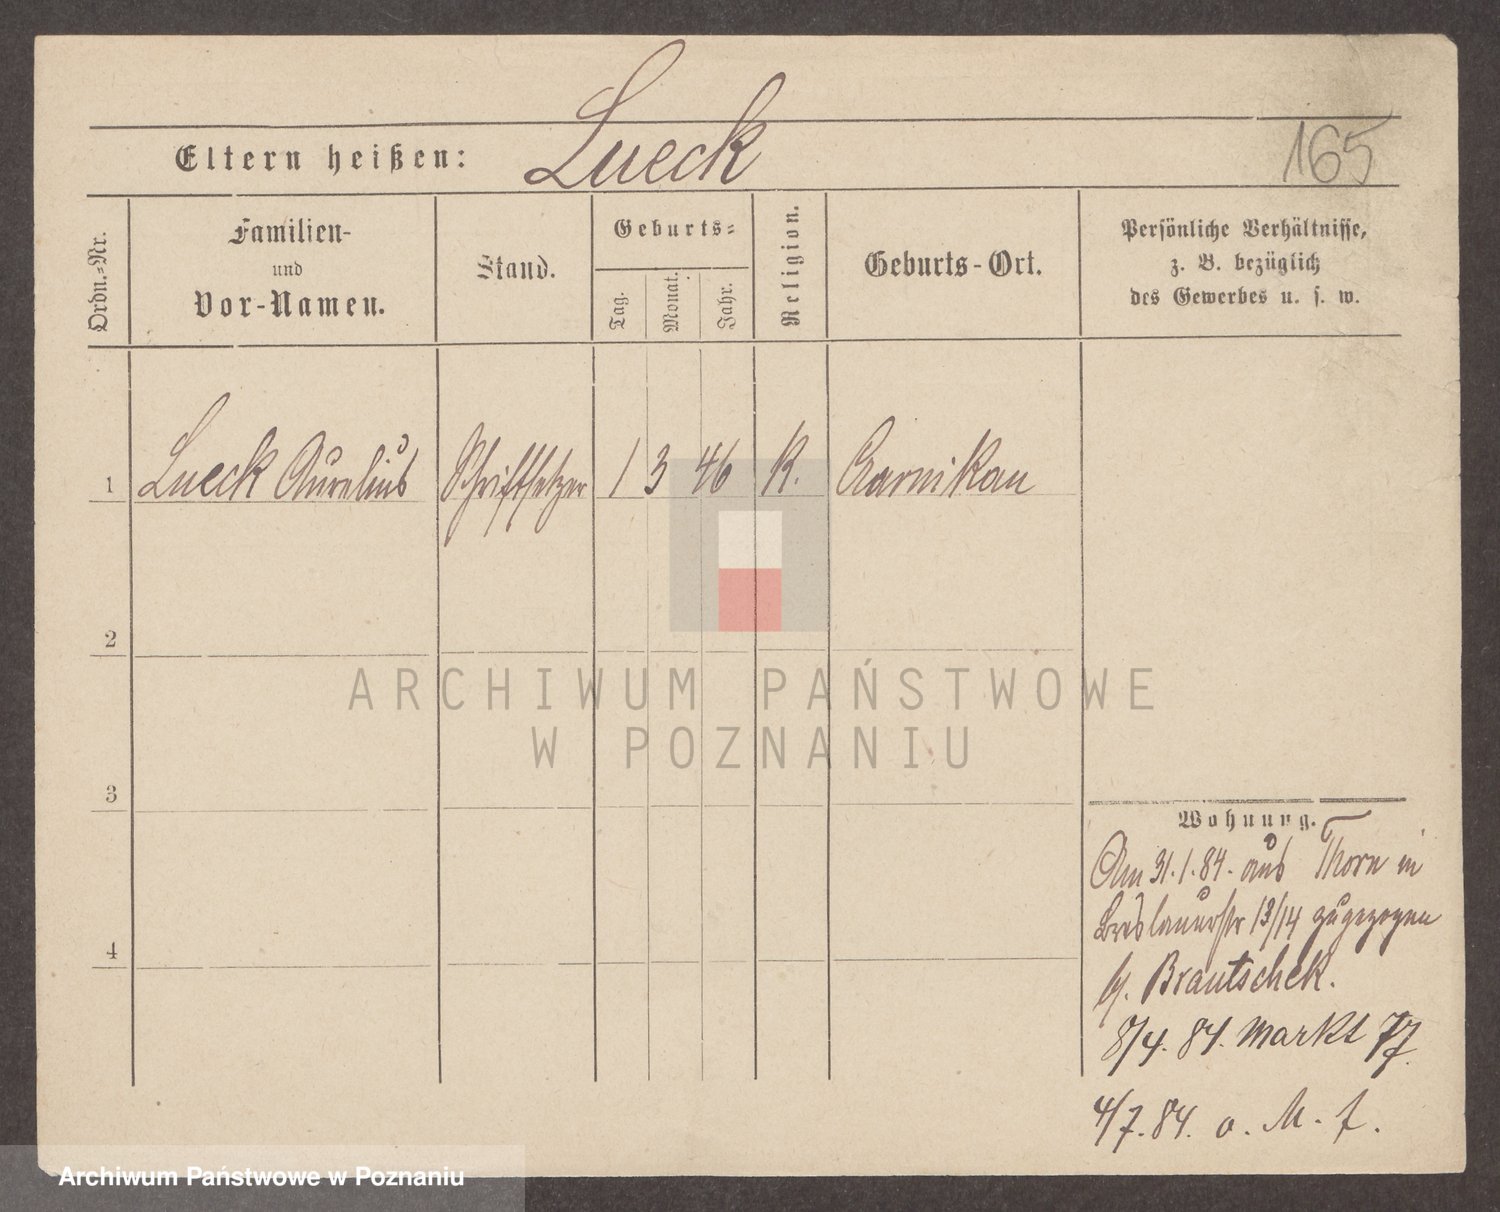 Eltern heißen: Lueck
165
Ordn.=Nr.
Familien-
und
Vor-Namen.
Stand.
Geburts=
Tag.
Monat.
Jahr.
Religion.
Geburts-Ort.
Persönliche Verhältnisse,
z. B. bezüglich
des Gewerbes u. s. w.
1 Lueck Aurelius Schriftsetzer 1 3 46 K. Czarnikau
2
ARCHIWUM PAŃSTWOWE
W POZNANIU
3
Wohnung.
Am 31.1.84. aus Thorn in
Breslauerstr 13/14 zugezogen
Brautschek.
4
8/4. 84. Markt 77
4/7. 84. o. M. f.
Archiwum Państwowe w Poznaniu